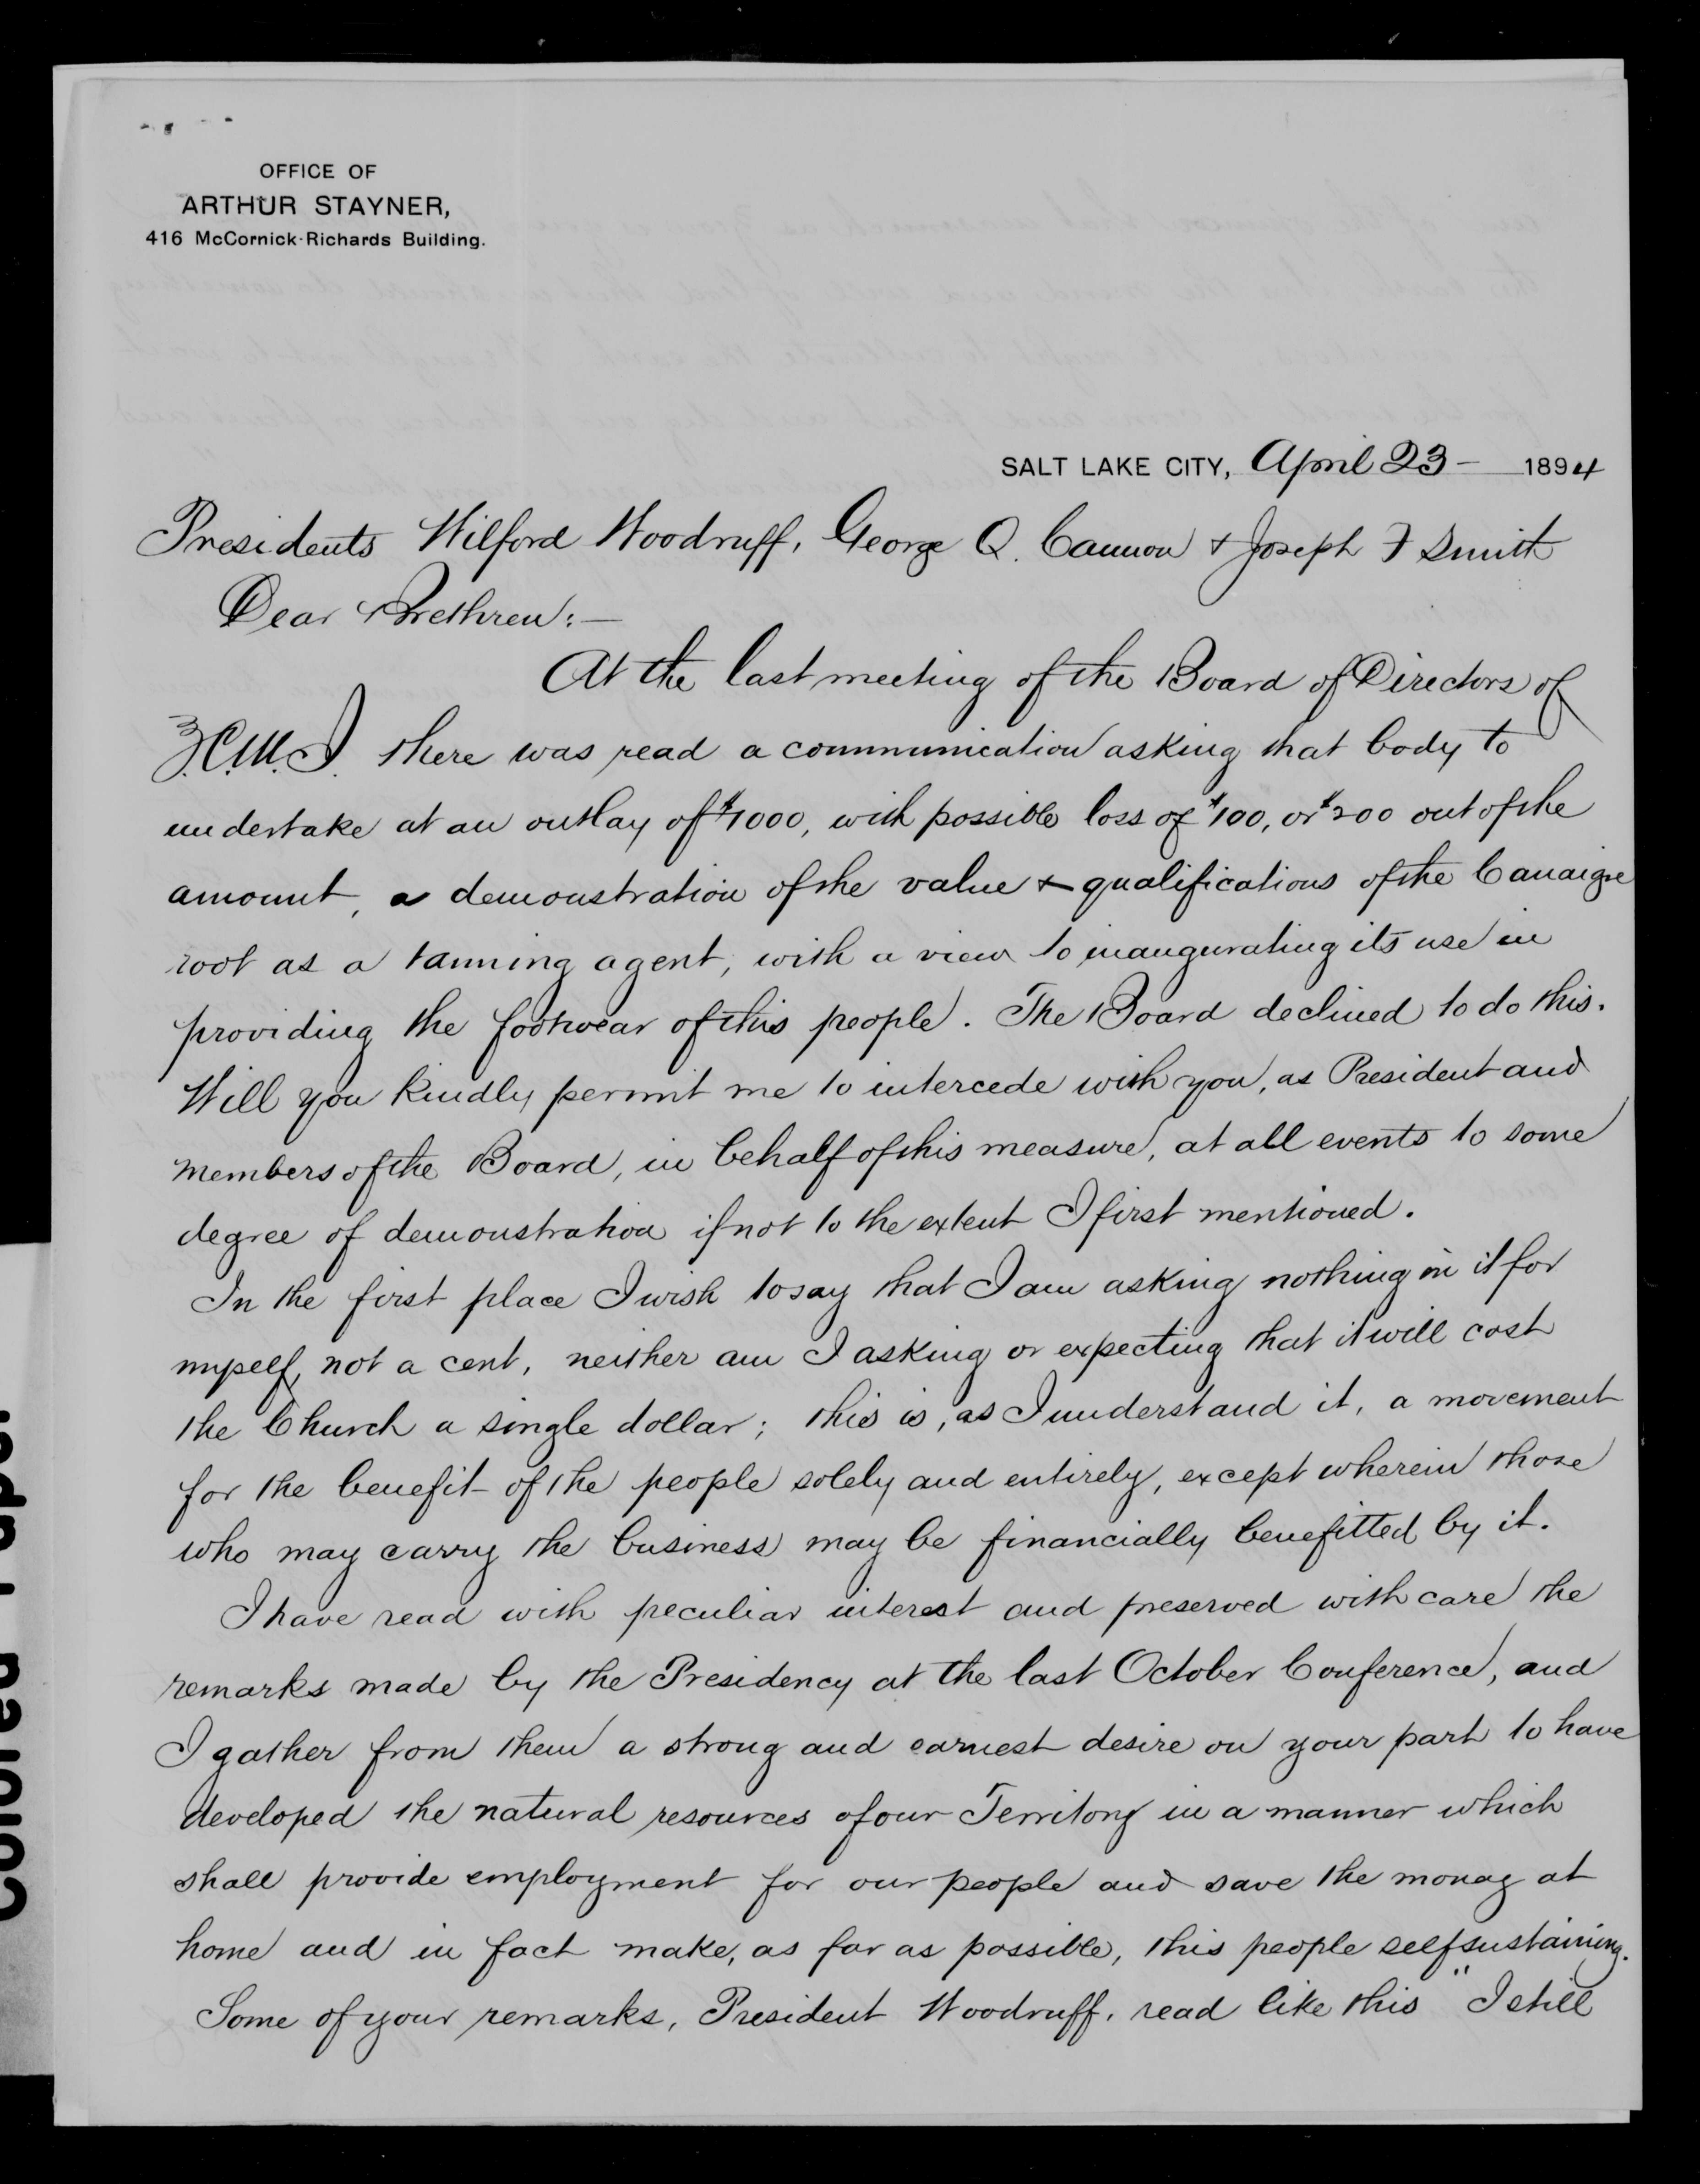 OFFICE OF
ARTHUR STAYNER,
416 McCornick-Richards Building.
SALT LAKE CITY, April 23 — 1894
Presidents Wilford Woodruff, George Q. Cannon & Joseph F Smith
Dear Brethren:—
At the last meeting of the Board of Directors of
Z.C.M.I. there was read a communication asking that body to
undertake at an outlay of $1000, with possible loss of $100, or $200 out of the
amount, a demonstration of the value & qualifications of the Canaigre
root as a tanning agent, with a view to inaugurating its use in
providing the footwear of this people. The Board declined to do this.
Will you kindly permit me to intercede with you, as President and
members of the Board, in behalf of this measure, at all events to some
degree of demonstration if not to the extent I first mentioned.
In the first place I wish to say that I am asking nothing in it for
myself, not a cent, neither am I asking or expecting that it will cost
the Church a single dollar; this is, as I understand it, a movement
for the benefit of the people solely and entirely, except wherein those
who may carry the business may be financially benefitted by it.
I have read with peculiar interest and preserved with care the
remarks made by the Presidency at the last October Conference, and
I gather from them a strong and earnest desire on your part to have
developed the natural resources of our Territory in a manner which
shall provide employment for our people and save the money at
home and in fact make, as far as possible, this people selfsustaining.
Some of your remarks, President Woodruff, read like this "I still